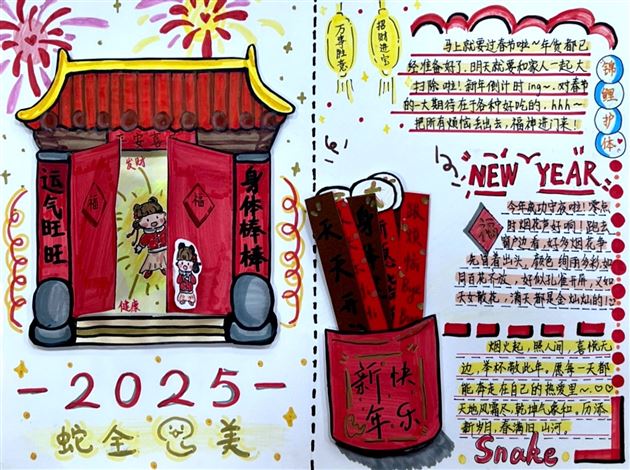 平安喜
发财
运气旺旺
身体棒棒
福
福
健康
2025
蛇全
美
万事胜意
招财进宝
马上就要过春节啦～年货都已
经准备好了,明天就要和家人一起大
扫除啦!新年倒计时ing～.对春节
的一大期待在于各种好吃的,hhh～
把所有烦恼丢出去,福神进门来!
锦鲤护体
NEW YEAR
福
今年成功守夜啦!零点
时烟花声好响!跑去
窗户边看,好多烟花争
先冒着出头,颜色绚丽多彩如
同百花齐放,好似孔雀开屏,又如
天女散花,满天都是金灿灿的!
天天开
身体
新年快乐
烟火起,照人间,喜悦无
边,举杯敬此年。愿每一天都
能奔走在自己的热爱里～
天地风霜尽,乾坤气象和,历添
新岁月,春满旧山河。
Snake